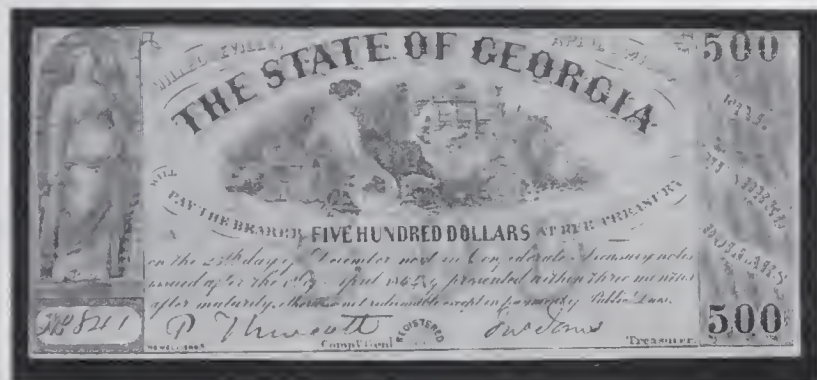 MILLEDGEVILLE, APRIL
THE STATE OF GEORGIA
500
WILL PAY THE BEARER FIVE HUNDRED DOLLARS AT HER TREASURY
on the 25th day of December next in Confederate Treasury notes
issued after the 1st of April 1864 if presented within three months
after maturity, otherwise not redeemable except in payment of Public Dues.
No 841
P Thweatt
Compt. Genl.
REGISTERED
Jno Jones
Treasurer.
500